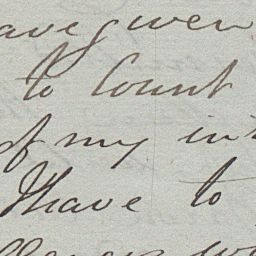 ave given
to Count
of my in
I have to